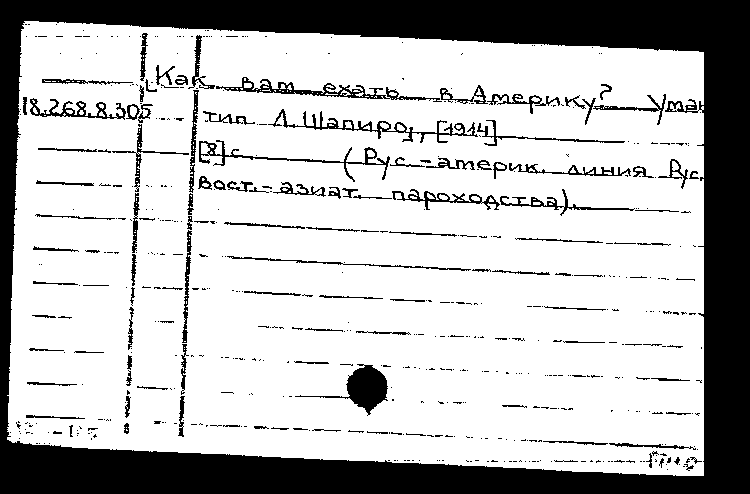 Как вам ехать в Америку? Уман
18.268.8.305 тип Л. Шапиро, [1914]
[8] с. (Рус.-америк. линия Рус.
вост.-азиат. пароходства).